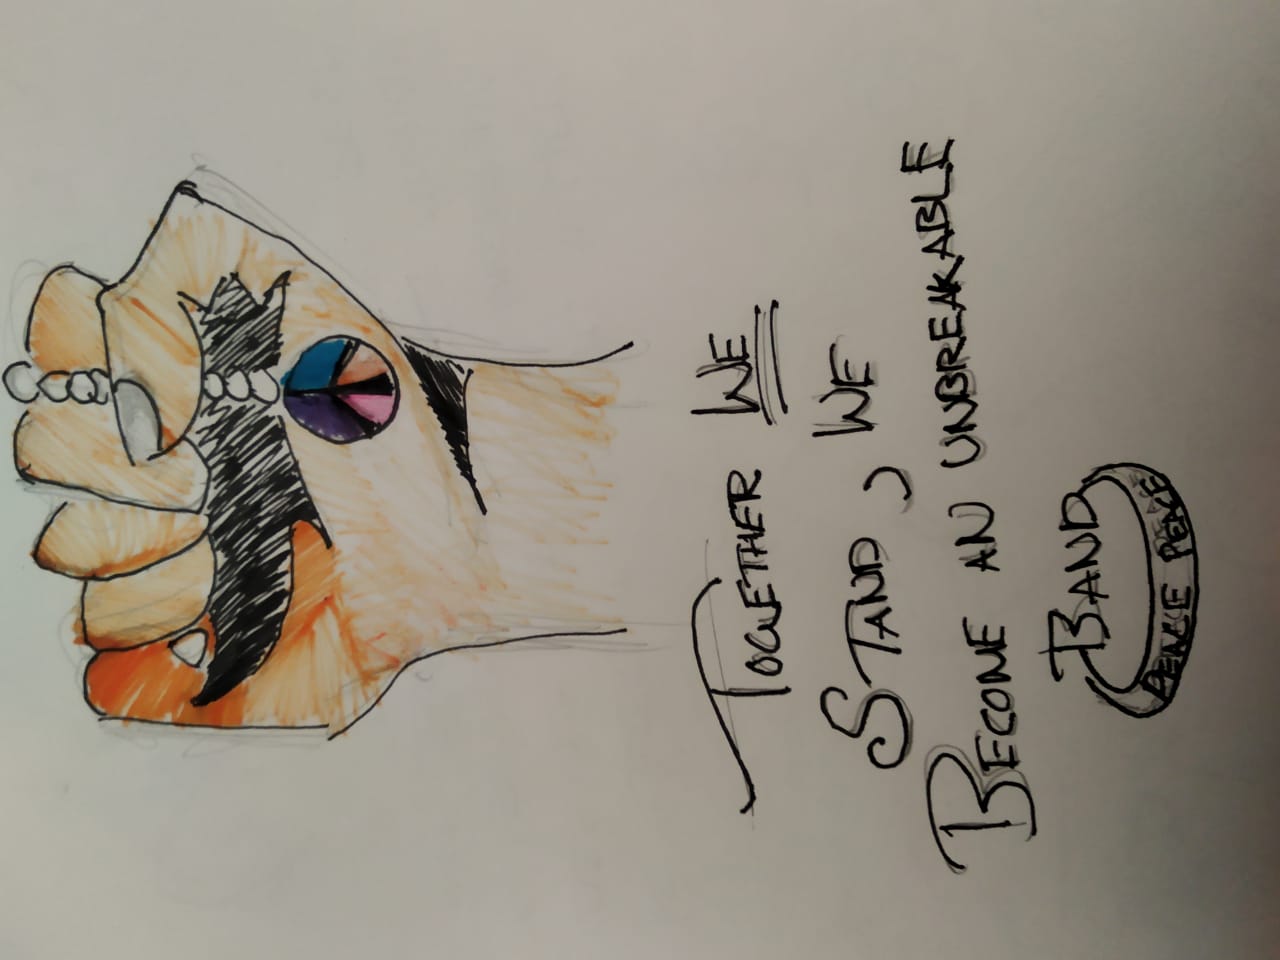 TOGETHER WE
STAND, WE
BECOME AN UNBREAKABLE
BAND
PEACE PEACE